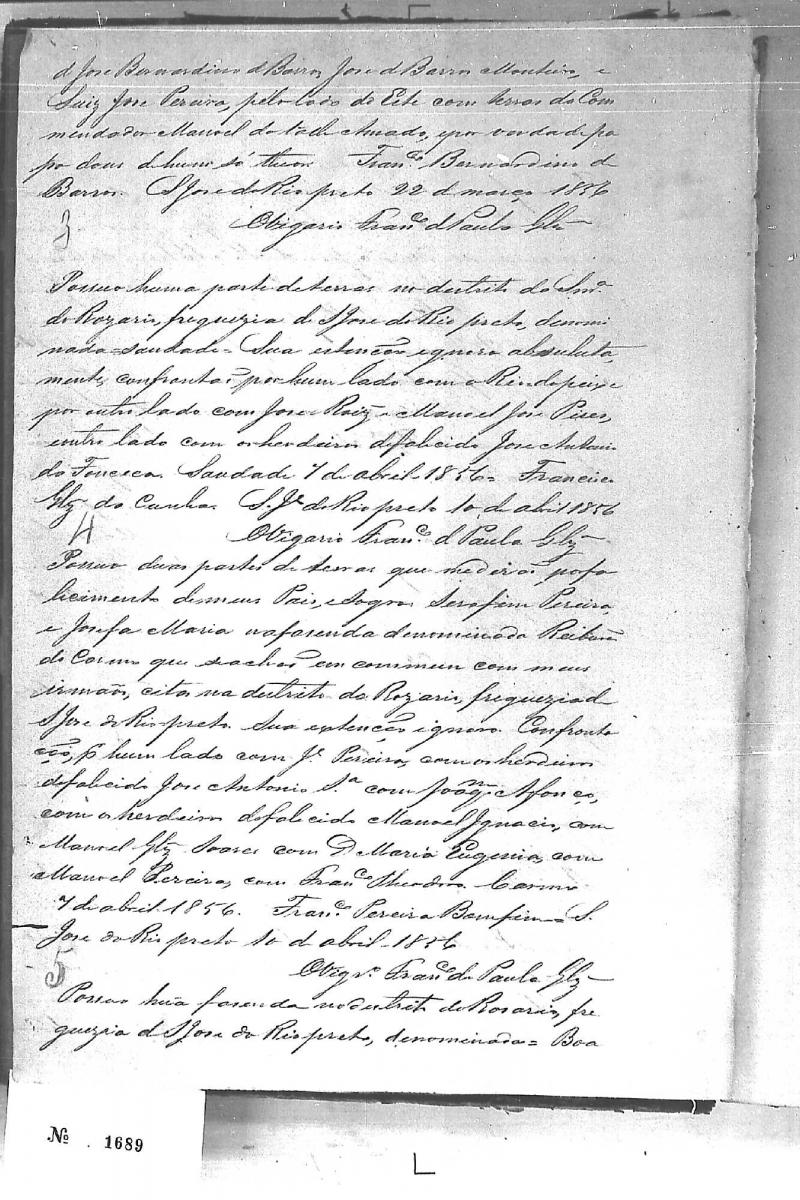 d Jose Bernardino d Barros, Jose d Barros Monteiro, e
Luiz Jose Pereira, pelo lado do Este com terras do Com
mendador Manoel da Amado, e por verdade pa
po dous d hum só theor. Franco Bernardino de
Barros. S Jose do Rio preto 22 d março 1856
3
O Vigario Franco d Paula Glz
Possuo huma parte de terras no destrito do Snr.
do Rozario, freguezia d S Jose do Rio preto, denomi
nada = saudade = Sua estenção ignoro absoluta
mente, confronta por hum lado com o Rio do peixe
por outro lado com Jose Roiz e Manoel Jose Pires,
outro lado com os herdeiros do falecido Jose Antonio
da Fonceca. Saudade 7 de abril 1856 = Francisco
Glz da Cunha. S. Je do Rio preto 10 de abril 1856
4
O Vigario Franco. d Paula Glz
Possuo duas partes de terras que por fa
licimento de meus Pais, e Sogros Serafim Pereira
e Josefa Maria na fasenda denominada Ribeirão
do Carmo que se achão em commum com meus
irmãos, citos na destrito do Rozario, freguezia d
S Jose do Rio preto. Sua estenção ignoro. Confronta
ção, p hum lado com Je Pereira, com os herdeiros
do falecido Jose Antonio Sa com Joaqm Afonço,
com os herdeiros do falecido Manoel Ignacio, com
Manoel Glz Soares com D. Maria Eugenia, com
Manoel Pereira, com Franco Theodoro. Carmo
7 de abril 1856. Franco Pereira Bomfim = S.
Jose do Rio preto 10 d abril 1856
5
O Vigro. Franco de Paula Glz
Possuo huã fasenda no destrito do Rosario, fre
guezia d S Jose do Rio preto, denominada = Boa
No. 1689